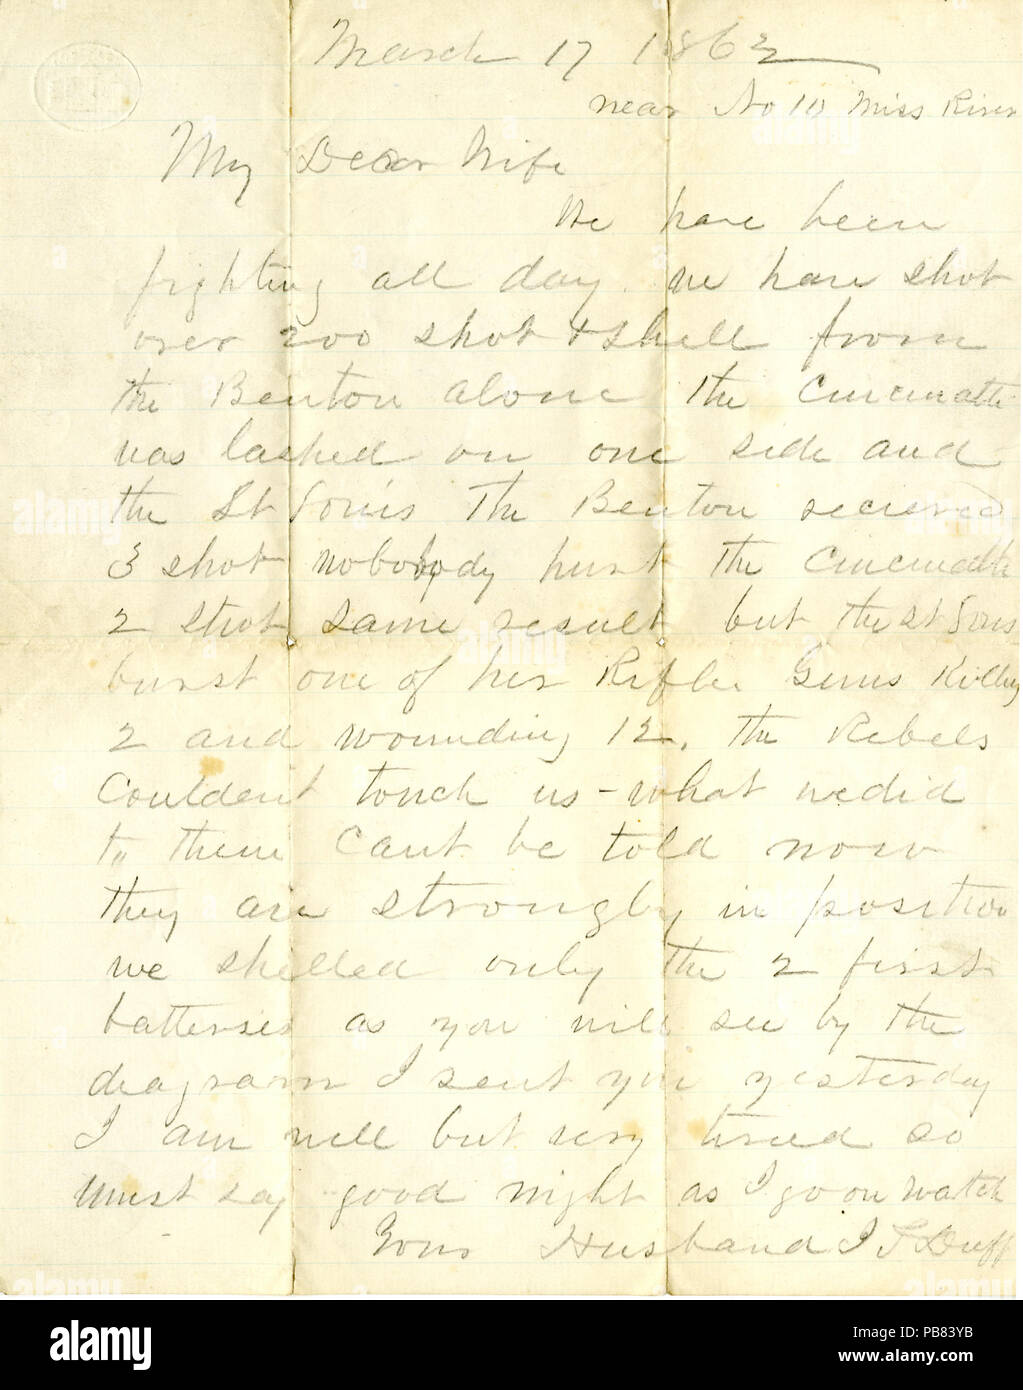 March 17 1862
near No 10 Miss River
My Dear Wife
We have been
fighting all day. we have shot
over 200 shot & shell from
the Benton alone the Cincinatti
was lashed on one side and
the St Louis The Benton recieved
3 shot nobobody hurt the Cincinatti
2 shot same result but the St Louis
burst one of her Rifle Guns Killing
2 and wounding 12. the Rebels
Couldent touch us - what we did
to them Cant be told now
they are strongly in position
we shelled only the 2 first
batterses as you will see by the
diagram I sent you yesterday
I am well but very tired so
must say good night as I go on watch
Your Husband J T Duff
alamy
Image ID: PB83YB
www.alamy.com